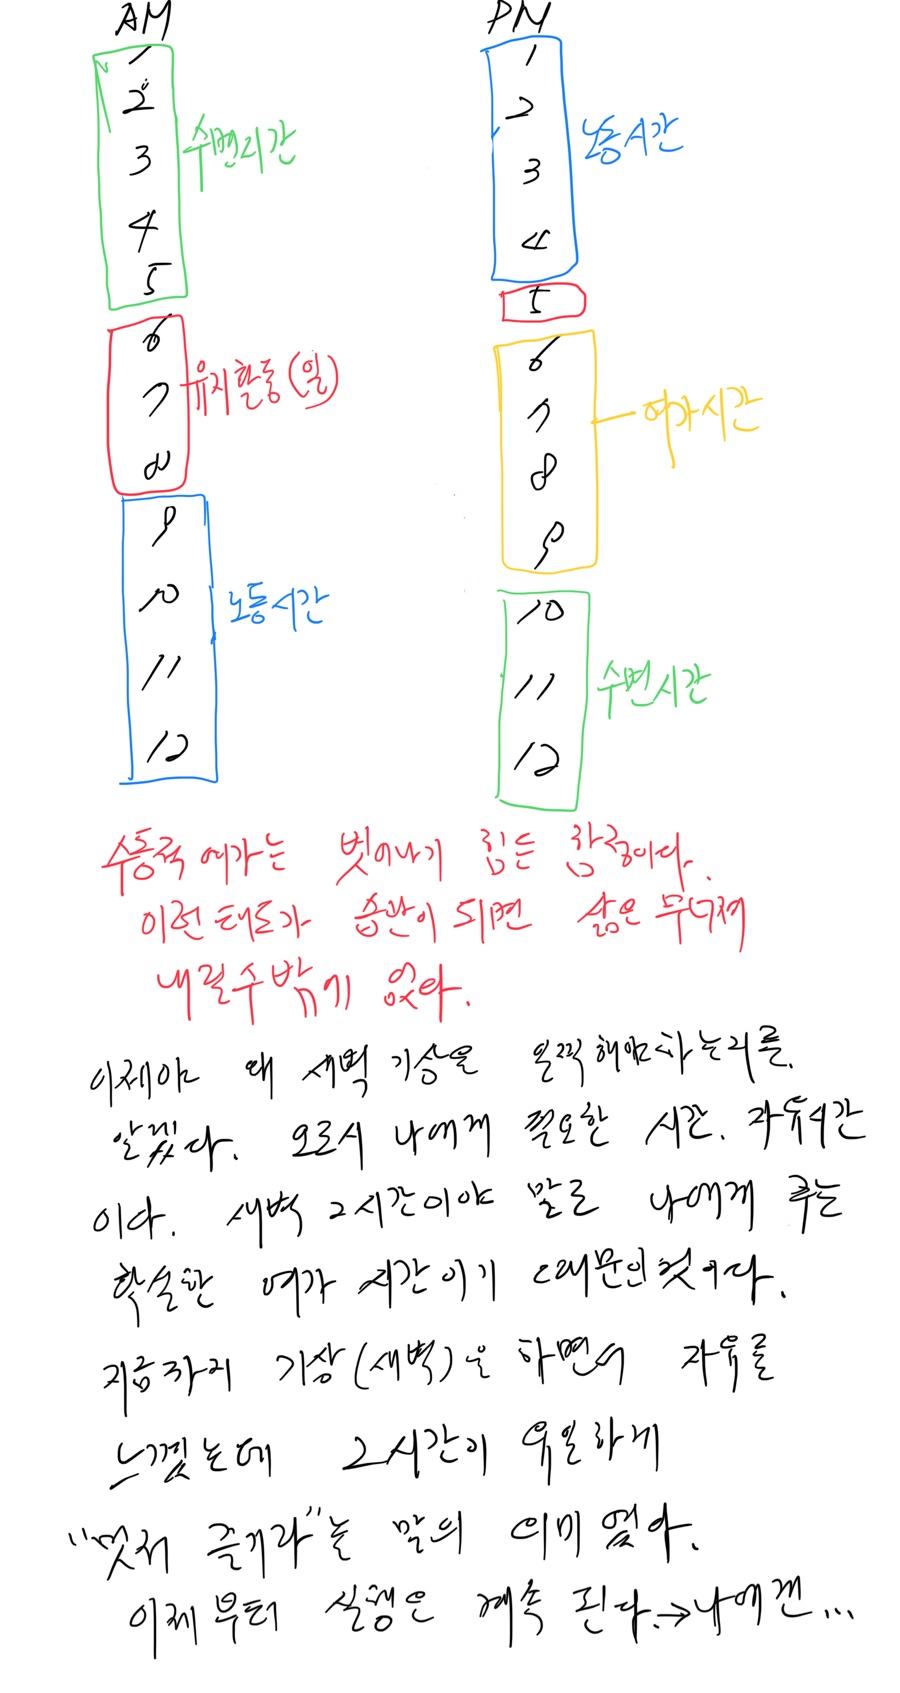 AM
1
2
3
4
5
수면시간
6
7
8
유지활동(일)
9
10
11
12
노동시간
PM
1
2
3
4
노동시간
5
6
7
8
9
여가시간
10
11
12
수면시간
수동적 여가는 벗어나기 힘든 함정이다.
이런 태도가 습관이 되면 삶은 무너져
내릴수 밖에 없다.
이제야 왜 새벽 기상을 일찍해야하는지를
알겠다. 오로시 나에게 필요한 시간. 자유시간
이다. 새벽 2시간이야 말로 나에게 주는
확실한 여가 시간이기 때문인것이다.
지금까지 기상(새벽)을 하면서 자유를
느꼈는데 2시간이 유일하게
즐겨라"는 말의 의미 였다.
이제부터 실행은 계속 된다.→나에겐...